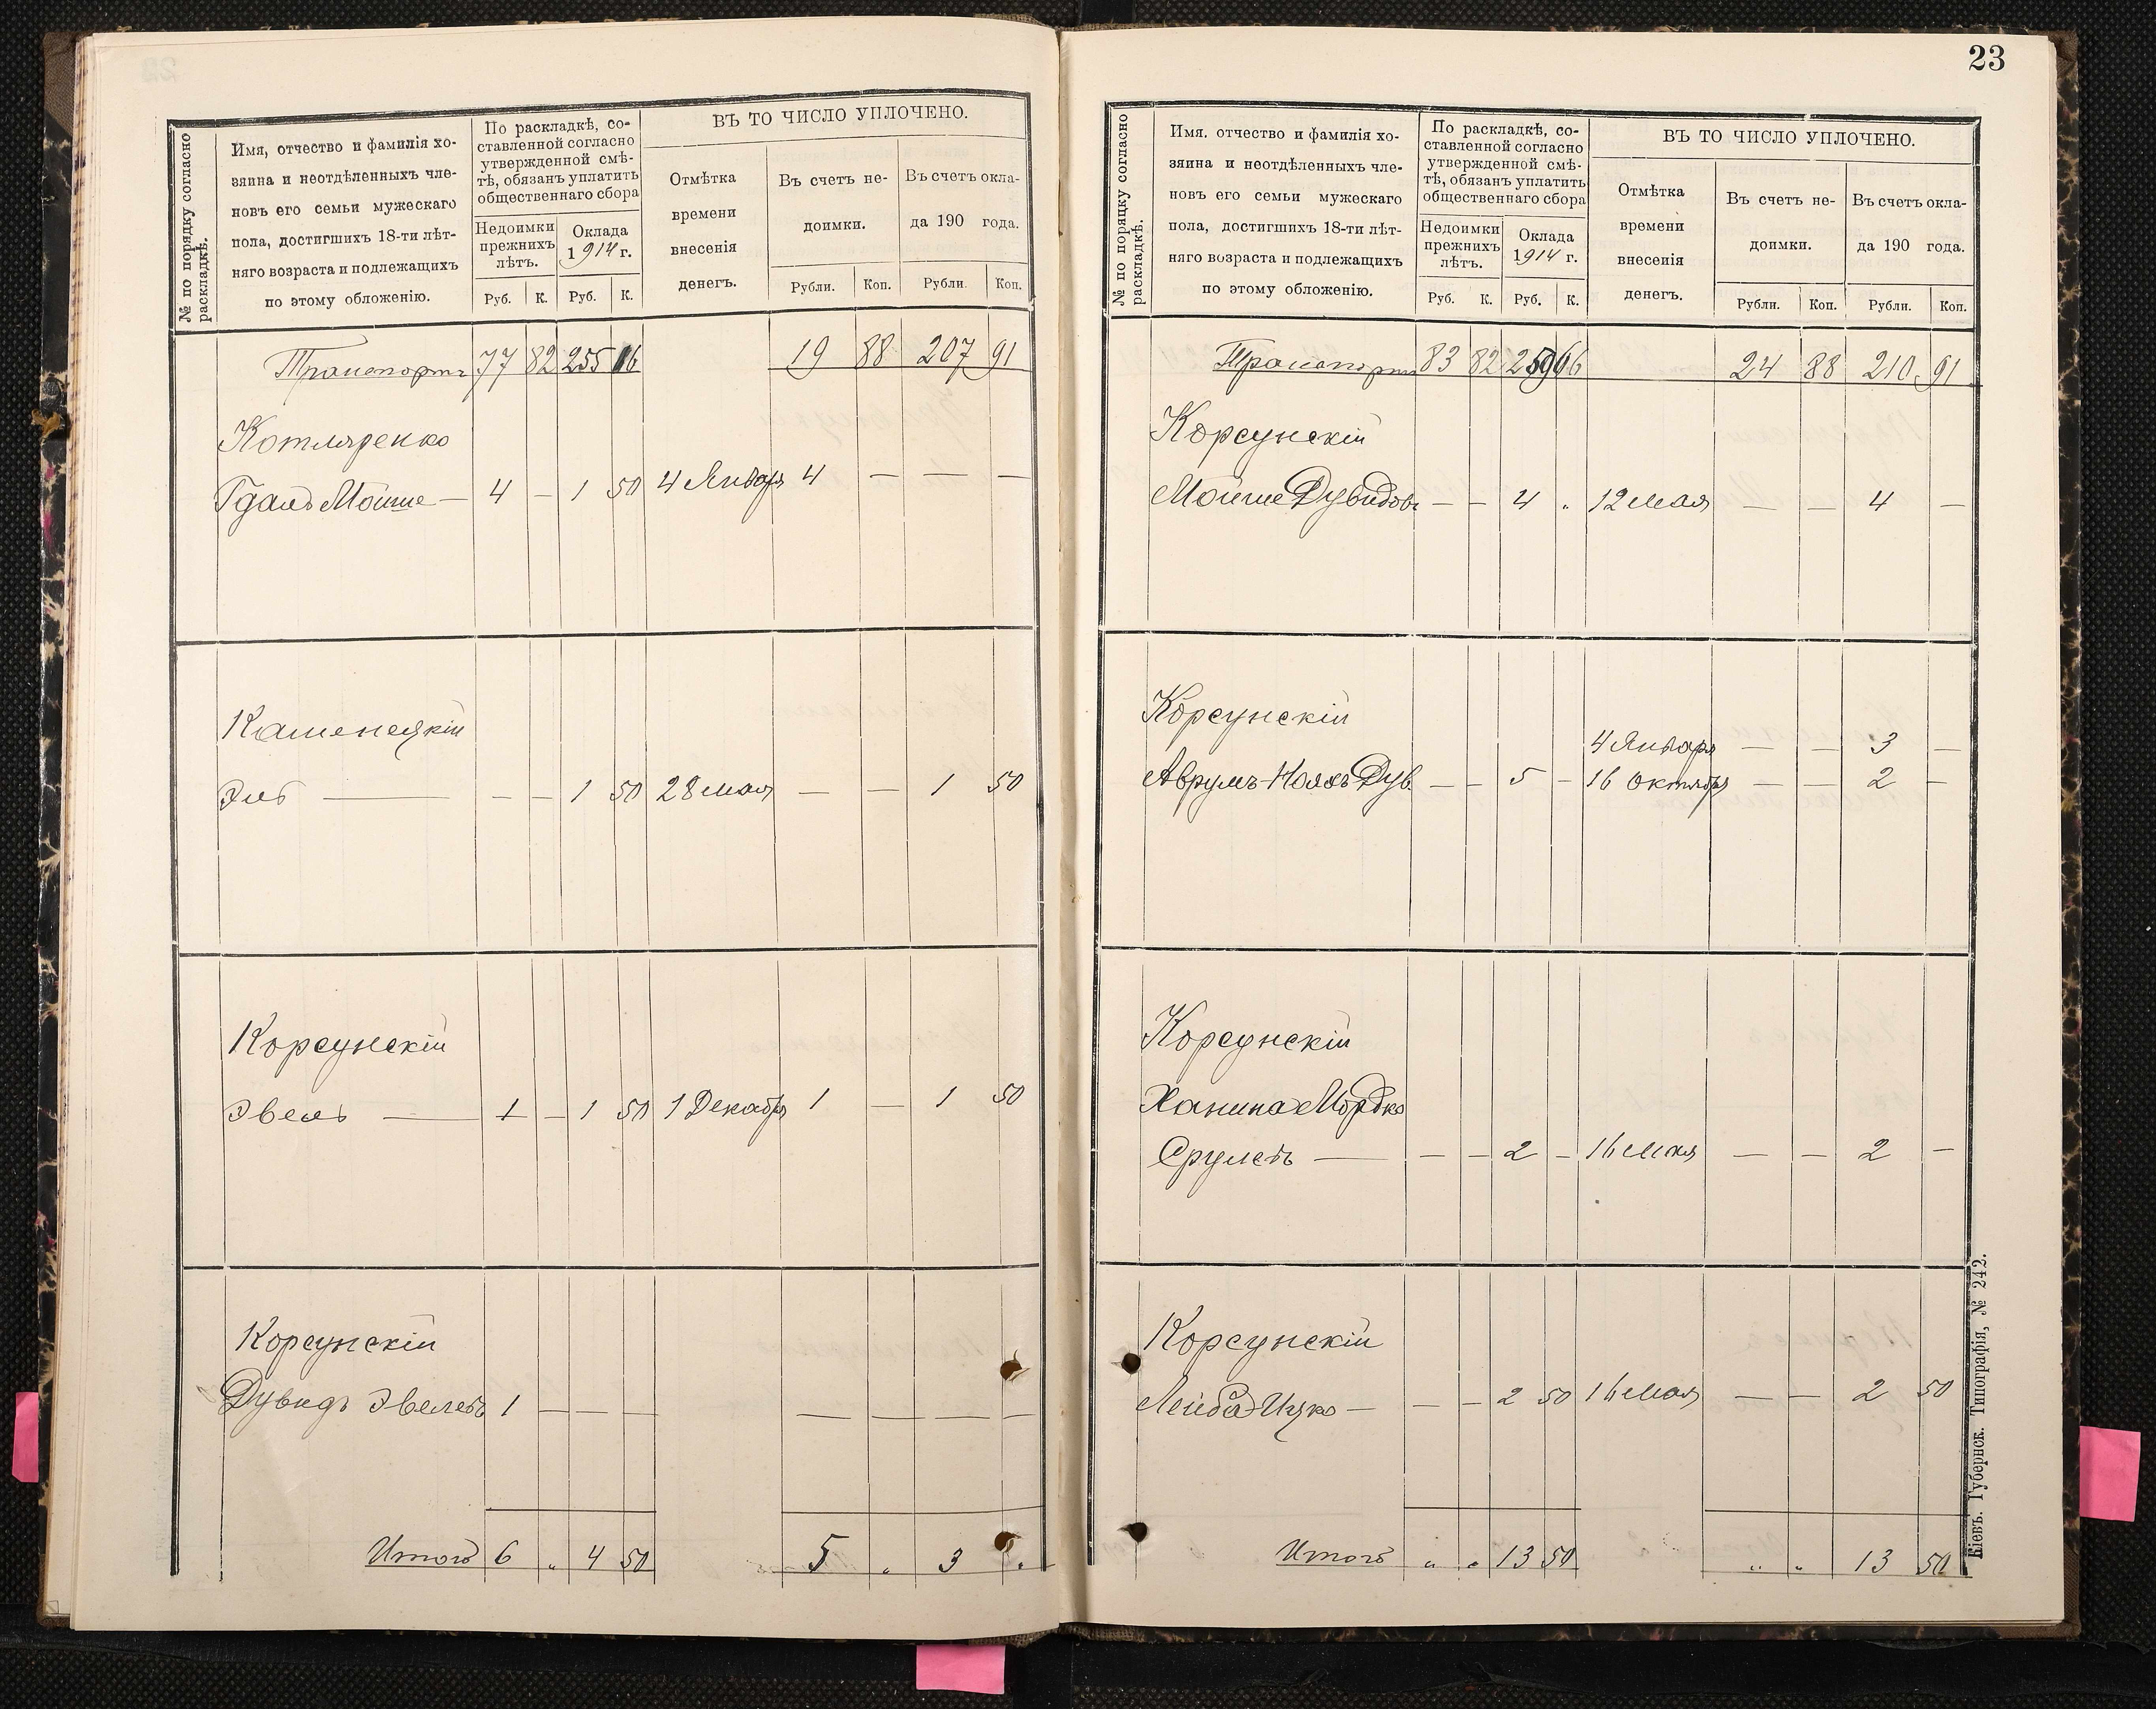 23
ВЪ ТО ЧИСЛО УПЛОЧЕНО.
№ по порядку согласно
раскладкѣ.
Имя, отчество и фамилія хо-
зяина и неотдѣленныхъ чле-
новъ его семьи мужескаго
пола, достигшихъ 18-ти лѣт-
няго возраста и подлежащихъ
по этому обложенію.
По раскладкѣ, со-
ставленной согласно
утвержденной смѣ-
тѣ, обязанъ уплатить
общественнаго сбора
Недоимки
прежнихъ
лѣтъ.
Оклада
1914 г.
Отмѣтка
времени
внесенія
денегъ.
Въ счетъ не-
доимки.
Въ счетъ окла-
да 190 года.
Руб. К. Руб. К. Рубли. Коп. Рубли. Коп.
Транспортъ 77 82 255 16 19 88 207 91
Котляренко
Гдаль Мойше — 4 — 1 50 4 Января 4 — — —
Каменецкій
Эль — — — 1 50 28 мая — — 1 50
Корсунскій
Эвель — 1 — 1 50 1 Декабря 1 — 1 50
Корсунскій
Дувидъ Эвелевъ 1 — — — — — — —
Итого 6 „ 4 50 5 „ 3 „
№ по порядку согласно
раскладкѣ.
Имя, отчество и фамилія хо-
зяина и неотдѣленныхъ чле-
новъ его семьи мужескаго
пола, достигшихъ 18-ти лѣт-
няго возраста и подлежащихъ
по этому обложенію.
По раскладкѣ, со-
ставленной согласно
утвержденной смѣ-
тѣ, обязанъ уплатить
общественнаго сбора
Недоимки
прежнихъ
лѣтъ.
Оклада
1914 г.
ВЪ ТО ЧИСЛО УПЛОЧЕНО.
Отмѣтка
времени
внесенія
денегъ.
Въ счетъ не-
доимки.
Въ счетъ окла-
да 190 года.
Руб. К. Руб. К. Рубли. Коп. Рубли. Коп.
Транспортъ 83 82 259 66 24 88 210 91
Корсунскій
Мойше Дувидовъ — — 4 „ 12 мая — — 4 —
Корсунскій
4 Января — — 3 —
Аврумъ-Ноахъ Дув. — — 5 — 16 Октября — — 2 —
Корсунскій
Ханина Мордко
Срулевъ — — — 2 — 16 мая — — 2 —
Корсунскій
Лейба-Ицко — — — 2 50 16 мая — — 2 50
Итого „ „ 13 50 „ „ 13 50
Кіевъ. Губернск. Типографія, № 242.